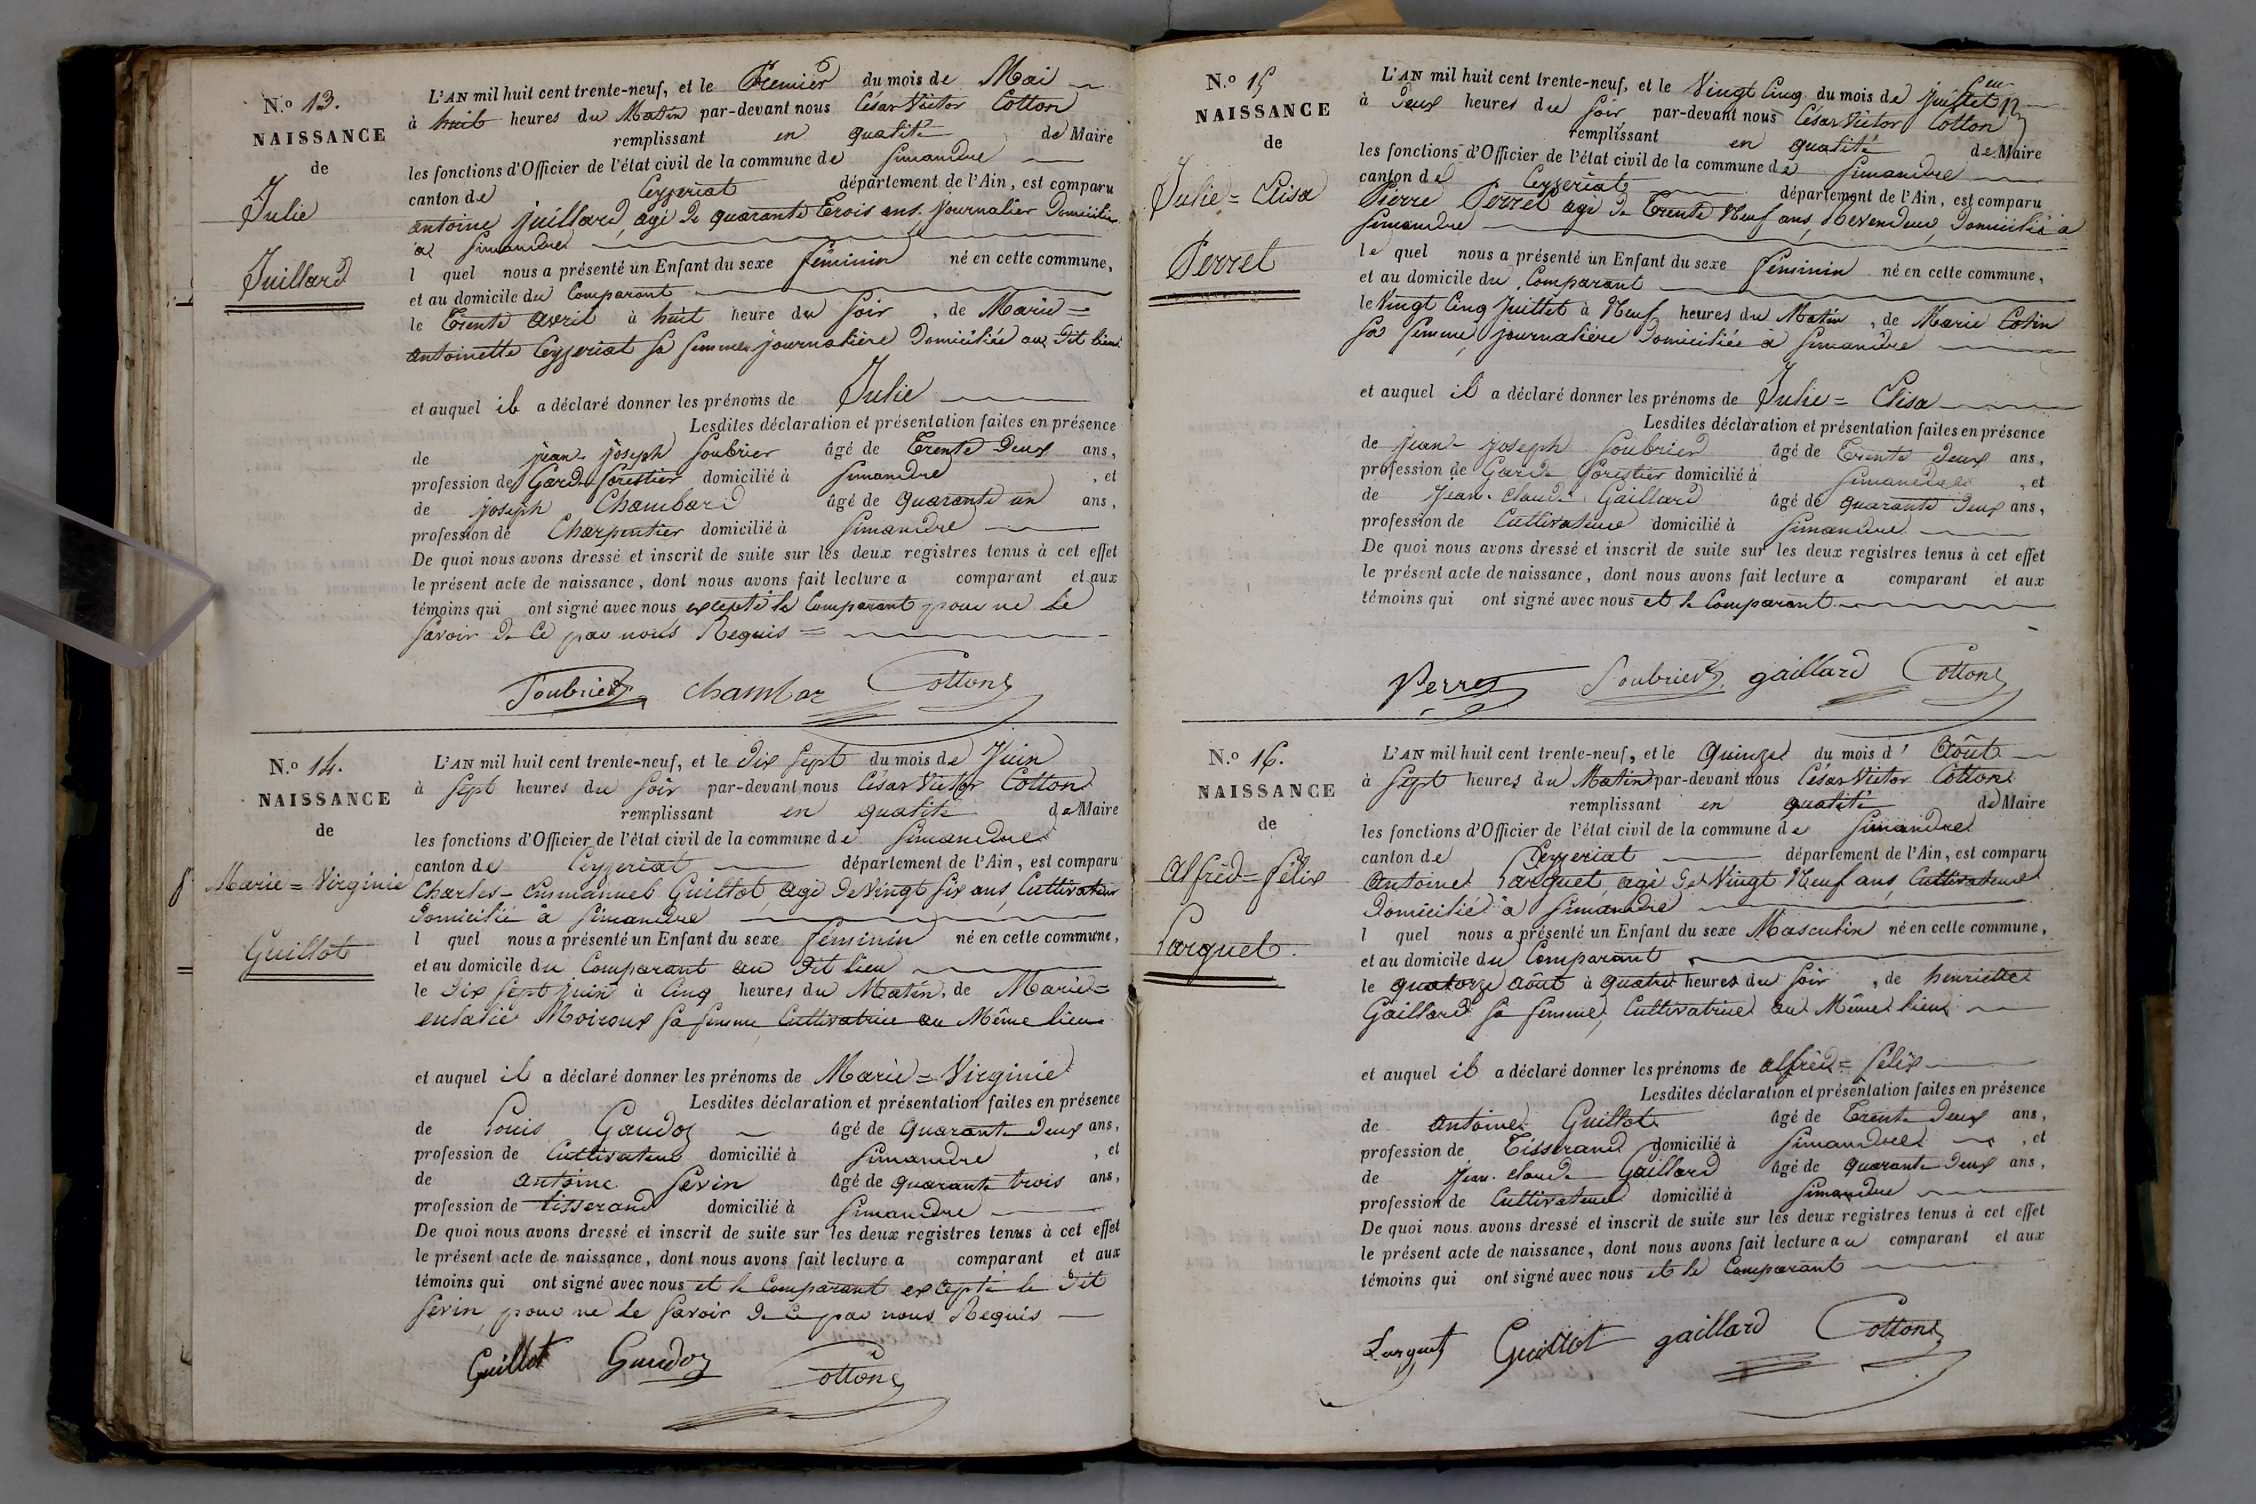 N.o 13.
NAISSANCE
de
Julie
Juillard
L'AN mil huit cent trente-neuf, et le Premier du mois de Mai
à huit heures du Matin par-devant nous César Victor Cotton
remplissant en qualité de Maire
les fonctions d'Officier de l'état civil de la commune de Simandre
canton de Ceyzeriat département de l'Ain, est comparu
antoine juillard, agé de quarante trois ans, journalier Domicilié
a Simandre
l quel nous a présenté un Enfant du sexe féminin né en cette commune,
et au domicile du Comparant
le Trente avril à huit heure du Soir, de Marie=
antoinette Ceyzeriat sa femme journalière Domiciliée au Dit lieu
et auquel il a déclaré donner les prénoms de Julie
Lesdites déclaration et présentation faites en présence
de jean joseph Soubrier âgé de Trente Deux ans,
profession de Garde Forestier domicilié à Simandre, et
de joseph Chambard âgé de quarante un ans,
profession de Charpentier domicilié à Simandre
De quoi nous avons dressé et inscrit de suite sur les deux registres tenus à cet effet
le présent acte de naissance, dont nous avons fait lecture a comparant et aux
témoins qui ont signé avec nous excepté le Comparant pour ne le
Savoir de Ce par nous Requis =
Soubrier chambar Cotton
N.o 14.
NAISSANCE
de
Marie = Virginie
Guillot
L'AN mil huit cent trente-neuf, et le dix Sept du mois de Juin
à Sept heures du Soir par-devant nous César Victor Cotton
remplissant en qualité de Maire
les fonctions d'Officier de l'état civil de la commune de Simandre
canton de Ceyzeriat département de l'Ain, est comparu
Charles = Emmanuel Guillot, agé de Vingt six ans, Cultivateur
Domicilié à Simandre
l quel nous a présenté un Enfant du sexe féminin né en cette commune,
et au domicile du Comparant au Dit lieu
le Dix Sept juin à Cinq heures du Matin, de Marie=
eulalie Moiroux sa femme, Cultivatrice au Même lieu
et auquel il a déclaré donner les prénoms de Marie = Virginie
Lesdites déclaration et présentation faites en présence
de Louis Gaudoz âgé de quarante Deux ans,
profession de Cultivateur domicilié à Simandre, et
de antoine Sevin âgé de quarante trois ans,
profession de tisserand domicilié à Simandre
De quoi nous avons dressé et inscrit de suite sur les deux registres tenus à cet effet
le présent acte de naissance, dont nous avons fait lecture a comparant et aux
témoins qui ont signé avec nous et le Comparant excepté le Dit
Sevin, pour ne le Savoir De Ce par nous Requis
Guillot Gaudoz Cotton
N.o 15
NAISSANCE
de
Julie = Elisa
Perret
L'AN mil huit cent trente-neuf, et le Vingt Cinq du mois de Juillet
à Deux heures du Soir par-devant nous César Victor Cotton
remplissant en qualité de Maire
les fonctions d'Officier de l'état civil de la commune de Simandre
canton de Ceyzeriat département de l'Ain, est comparu
Pierre Perret agé de Trente Neuf ans, Revendeur, Domicilié à
Simandre
le quel nous a présenté un Enfant du sexe féminin né en cette commune,
et au domicile du Comparant
le Vingt Cinq Juillet à Neuf heures du Matin, de Marie Cotin
sa femme, journalière Domiciliée à Simandre
et auquel il a déclaré donner les prénoms de Julie = Elisa
Lesdites déclaration et présentation faites en présence
de jean joseph Soubrier âgé de Trente Deux ans,
profession de Garde Forestier domicilié à Simandre, et
de jean claude Gaillard âgé de quarante Deux ans,
profession de Cultivateur domicilié à Simandre
De quoi nous avons dressé et inscrit de suite sur les deux registres tenus à cet effet
le présent acte de naissance, dont nous avons fait lecture a comparant et aux
témoins qui ont signé avec nous et le Comparant
Perret Soubrier gaillard Cotton
N.o 16.
NAISSANCE
de
alfred = félix
Larguet.
L'AN mil huit cent trente-neuf, et le Quinze du mois d' Août
à Sept heures du Matin par-devant nous César Victor Cotton
remplissant en qualité de Maire
les fonctions d'Officier de l'état civil de la commune de Simandre
canton de Ceyzeriat département de l'Ain, est comparu
Antoine Larguet, agé de Vingt Neuf ans, Cultivateur
Domicilié à Simandre
l quel nous a présenté un Enfant du sexe Masculin né en cette commune,
et au domicile du Comparant
le quatorze août à quatre heures du Soir, de henriette
Gaillard sa femme, Cultivatrice au Même lieu
et auquel il a déclaré donner les prénoms de alfred = félix
Lesdites déclaration et présentation faites en présence
de antoine Guillot âgé de Trente Deux ans,
profession de Tisserand domicilié à Simandre, et
de jean claude Gaillard âgé de quarante Deux ans,
profession de Cultivateur domicilié à Simandre
De quoi nous avons dressé et inscrit de suite sur les deux registres tenus à cet effet
le présent acte de naissance, dont nous avons fait lecture au comparant et aux
témoins qui ont signé avec nous et le Comparant
Larguet Guillot gaillard Cotton